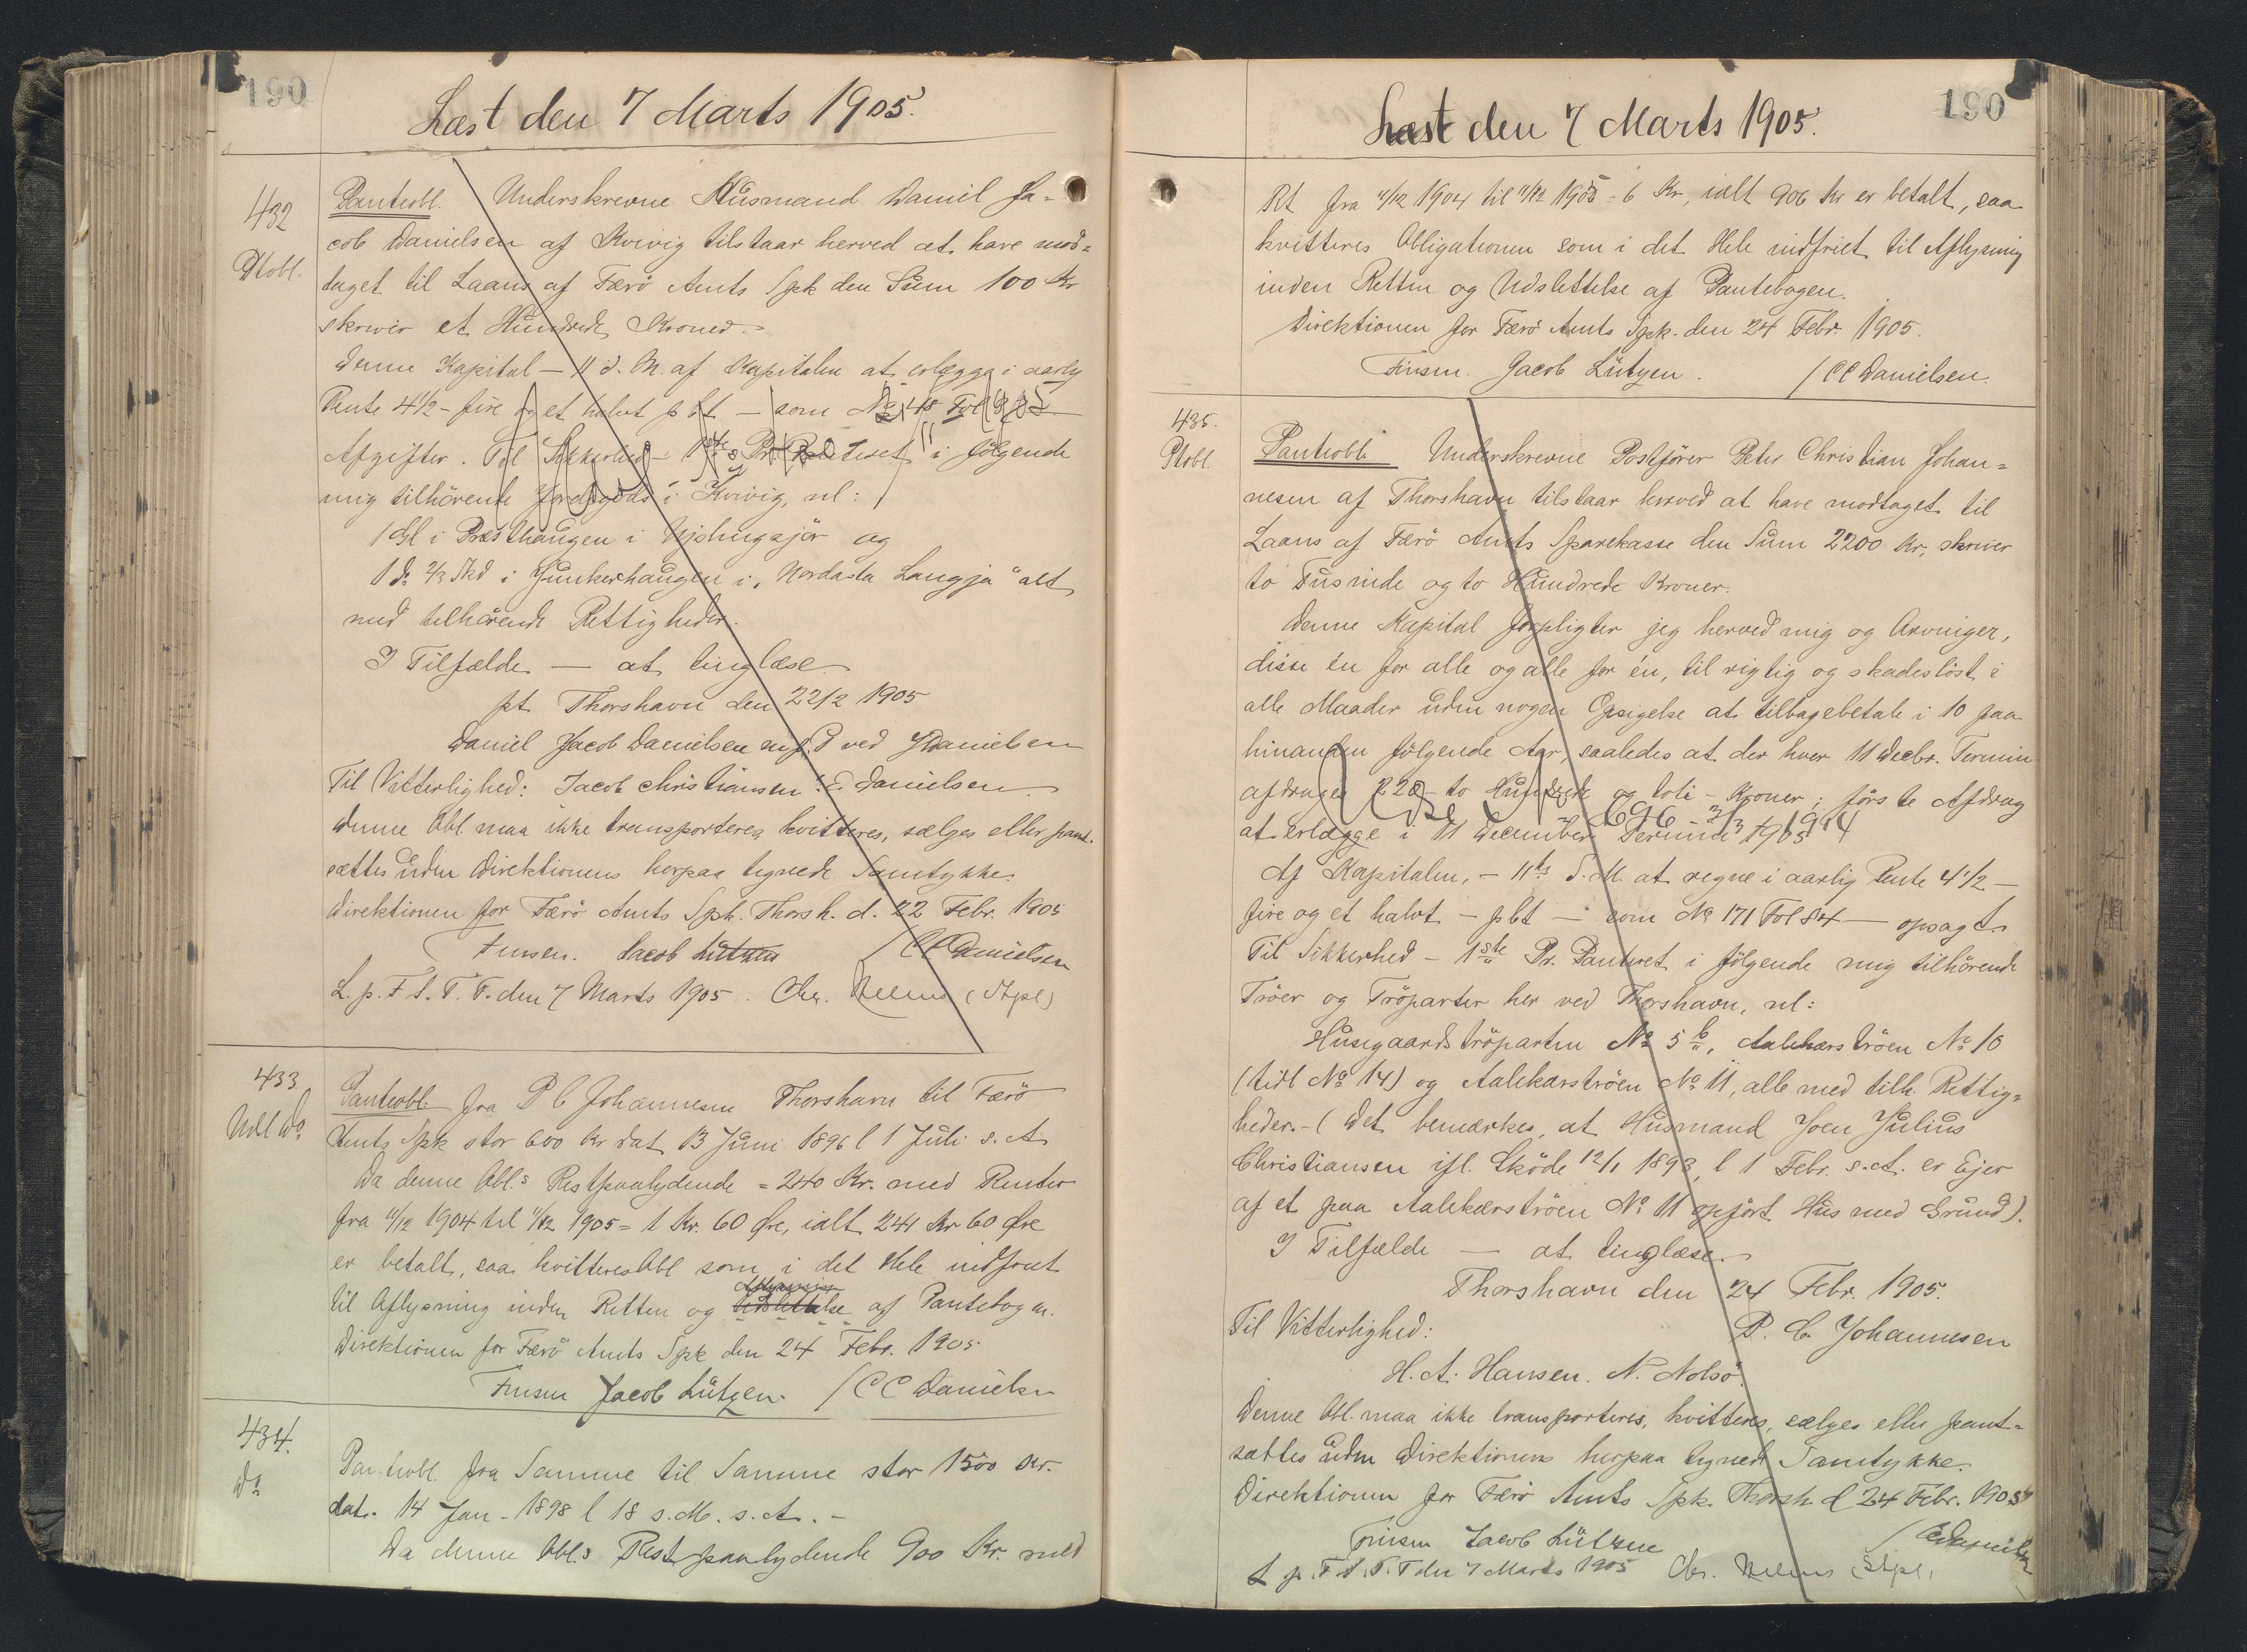 190
Læst den 7 Marts 1905.
432
Ptobl.
Panteobl. Underskrevne Husmand Daniel Ja=
cob Danielsen af Kvivig tilstaar herved at have mod=
taget til Laans af Færö Amts Spk den Sum 100 Kr
skriver et Hundrede Kroner.-
Denne Kapital — 11 d. M. af Kapitalen at erlægge i aarlig
Rente 4 1/2 - fire og et halvt pCt — som No
Afgifter. Til Sikkerhed - 1ste Pr. Panteret i følgende
mig tilhörende Jordegods i Kvivig, nl:
1 Gl i Præsthaugen i og
1 do 2/3 Skd i Junkerhaugen i "Nordasta Langja" alt
med tilhörende Rettigheder.
I Tilfælde — at tinglæse
pt. Thorshavn den 22/2 1905
Daniel Jacob Danielsen m. f. P. ved J Danielsen
Til Vitterlighed: Jacob Christiansen. E Danielsen
Denne Obl. maa ikke transporteres kvitteres, sælges eller pant-
sættes uden Direktionens herpaa tegnede Samtykke.
Direktionen for Færö Amts Spk. Thorsh. d. 22 Febr. 1905
Finsen. Jacob Lützen / C C Danielsen
L. p. F. S. T. T. den 7 Marts 1905. Chr. (Stpl)
433
Udl Do
Panteobl. fra P C Johannesen Thorshavn til Færö
Amts Spk stor 600 Kr dat 13 Juni 1896 l 1 Juli s. A
Da denne Obl.s Restpaalydende = 240 Kr. med Renter
fra 11/12 1904 til 1905 = 1 Kr. 60 Øre, ialt 241 Kr 60 Øre
er betalt, saa kvitteres Obl som i det Hele indfriet
til Aflysning inden Retten og Udslettelse af Pantebogen.
Direktionen for Færö Amts Spk den 24 Febr. 1905.
Finsen Jacob Lützen. / C C Danielsen
434.
Do
Panteobl. fra Samme til Samme stor 1500 Kr.
dat. 14 Jan - 1898 l 18 s. M. s. A. -
Da denne Obl.s Restpaalydende 900 Kr. med
190
Læst den 7 Marts 1905.
Rt fra 11/12 1904 til 1905 = 6 Kr, ialt 906 Kr er betalt, saa
kvitteres Obligationen som i det Hele indfriet til Aflysning
inden Retten og Udslettelse af Pantebogen.
Direktionen for Færö Amts Spk. den 24 Febr. 1905.
Finsen. Jacob Lützen. / C C Danielsen.
435.
Ptobl.
Panteobl. Underskrevne Postförer Peter Christian Johan=
nesen af Thorshavn tilstaar herved at have modtaget til
Laans af Færö Amts Sparekasse den Sum 2200 Kr, skriver
to Tusinde og to Hundrede Kroner.
Denne Kapital forpligter jeg herved mig og Arvinger,
disse én for alle og alle for én, til rigtig og skadeslöst i
alle Maader uden nogen Opsigelse at tilbagebetale i 10 paa
hinanden fölgende Aar, saaledes at der hver 11 Decbr. Termin
afdrages 220 - to Hundrede og tyve - Kroner; förste Afdrag
at erlægge i 11 December Termin 1905
696 31/3 1914
Af Kapitalen, - 11te d. M. at regne i aarlig Rente 4 1/2 —
fire og et halvt - pCt — som No 171 Fol 84 — opsagt.
Til Sikkerhed - 1ste Pr. Panteret i fölgende mig tilhörende
Tröer og Tröparter her ved Thorshavn, nl:
Husegaardströparten No 5 b, Aalekærströen No 10
(tidl No 14) og Aalekærströen No 11, alle med tilh. Rettig=
heder. - (Det bemærkes, at Husmand Joen Julius
Christiansen ifl. Sköde 12/1 1893, l 1 Febr. s. A. er Ejer
af et paa Aalekærströen No 11 opfört Hus med Grund).
I Tilfælde — at tinglæse.
Thorshavn den 24 Febr. 1905.
Til Vitterlighed: P. C. Johannesen
H. A. Hansen. N. Nolsö.
Denne Obl. maa ikke transporteres, kvitteres, sælges eller pant=
sættes uden Direktionens herpaa tegnede Samtykke.
Direktionen for Færö Amts Spk. Thorsh d 24 Febr. 1905
Finsen Jacob Lützen / C C Danielsen
L. p. F. S. T. T den 7 Marts 1905 Chr. (Stpl.